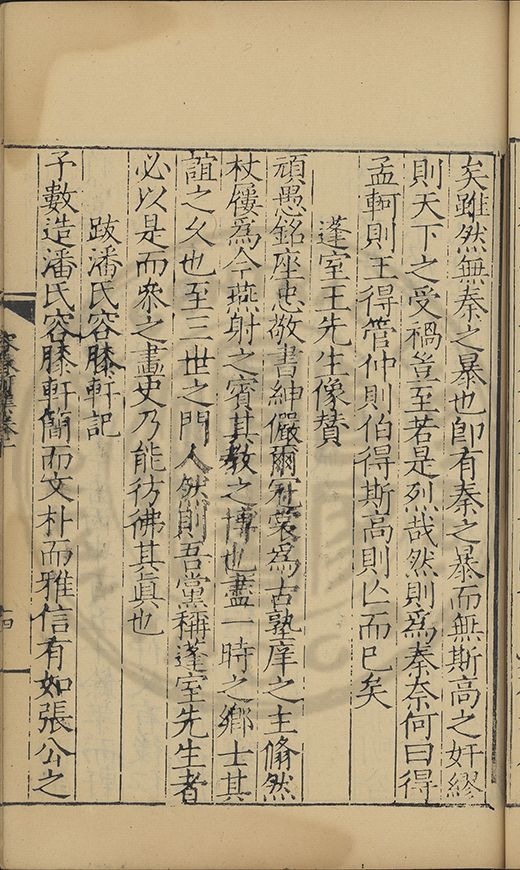 矣雖然無秦之暴也卽有秦之暴而無斯高之奸繆
則天下之受禍豈至若是烈哉然則爲秦奈何曰得
孟軻則王得管仲則伯得斯高則亾而已矣
蓬室王先生像賛
頑愚銘座忠敬書紳儼爾冠裳爲古塾庠之主翛然
杖屨爲今燕射之賓其教之博也盡一時之鄉士其
誼之久也至三世之門人然則吾黨稱蓬室先生者
必以是而衆之畫史乃能彷彿其眞也
跋潘氏容膝軒記
予數造潘氏容膝軒簡而文朴而雅信有如張公之